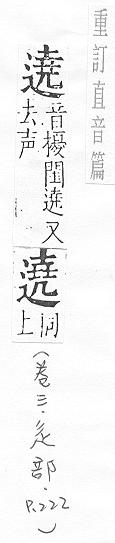 重訂直音篇
遶音擾圍遶又去声
𨔍同上
(卷三·辵部·P.222)